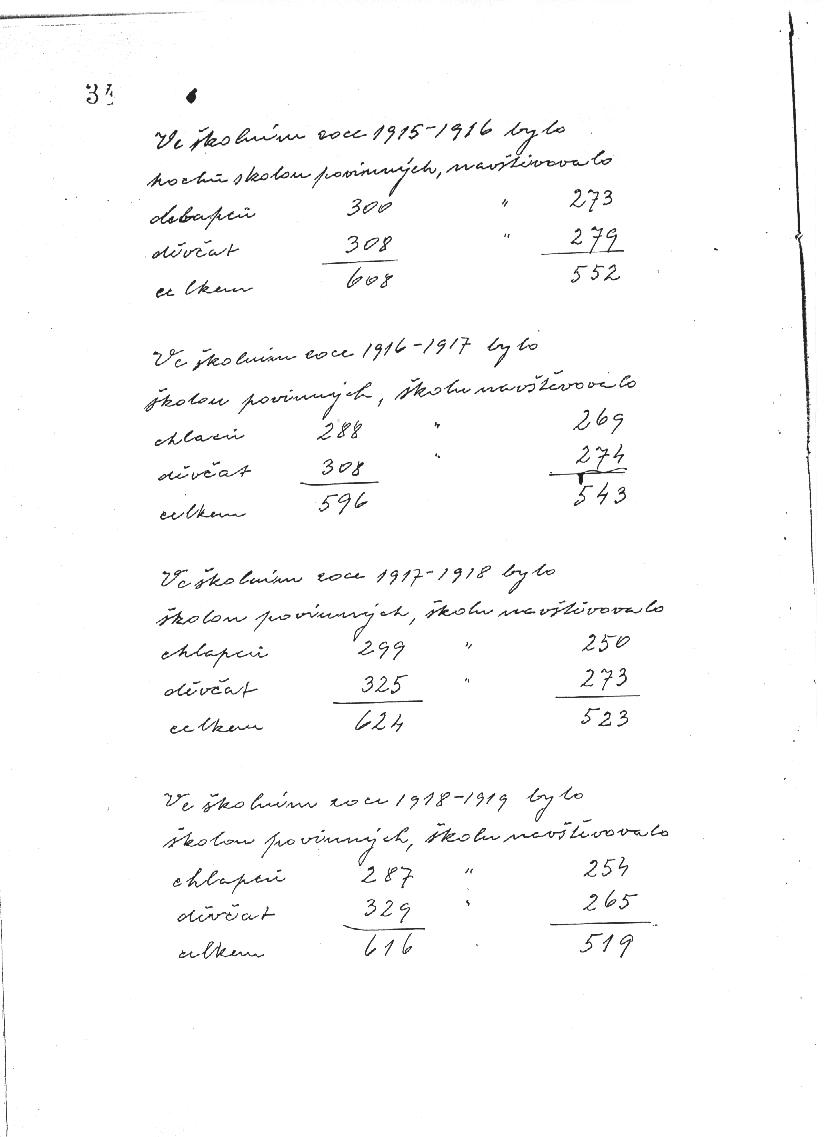 34
Ve školním roce 1915-1916 bylo
hochů školou povinných, navštěvovalo
300 " 273
děvčat 308 " 279
celkem 608 552
Ve školním roce 1916-1917 bylo
školou povinných, školu navštěvovalo
chlapců 288 " 269
děvčat 308 " 274
celkem 596 543
Ve školním roce 1917-1918 bylo
školou povinných, školu navštěvovalo
chlapců 299 " 250
děvčat 325 " 273
celkem 624 523
Ve školním roce 1918-1919 bylo
školou povinných, školu navštěvovalo
chlapců 287 " 254
děvčat 329 " 265
celkem 616 519